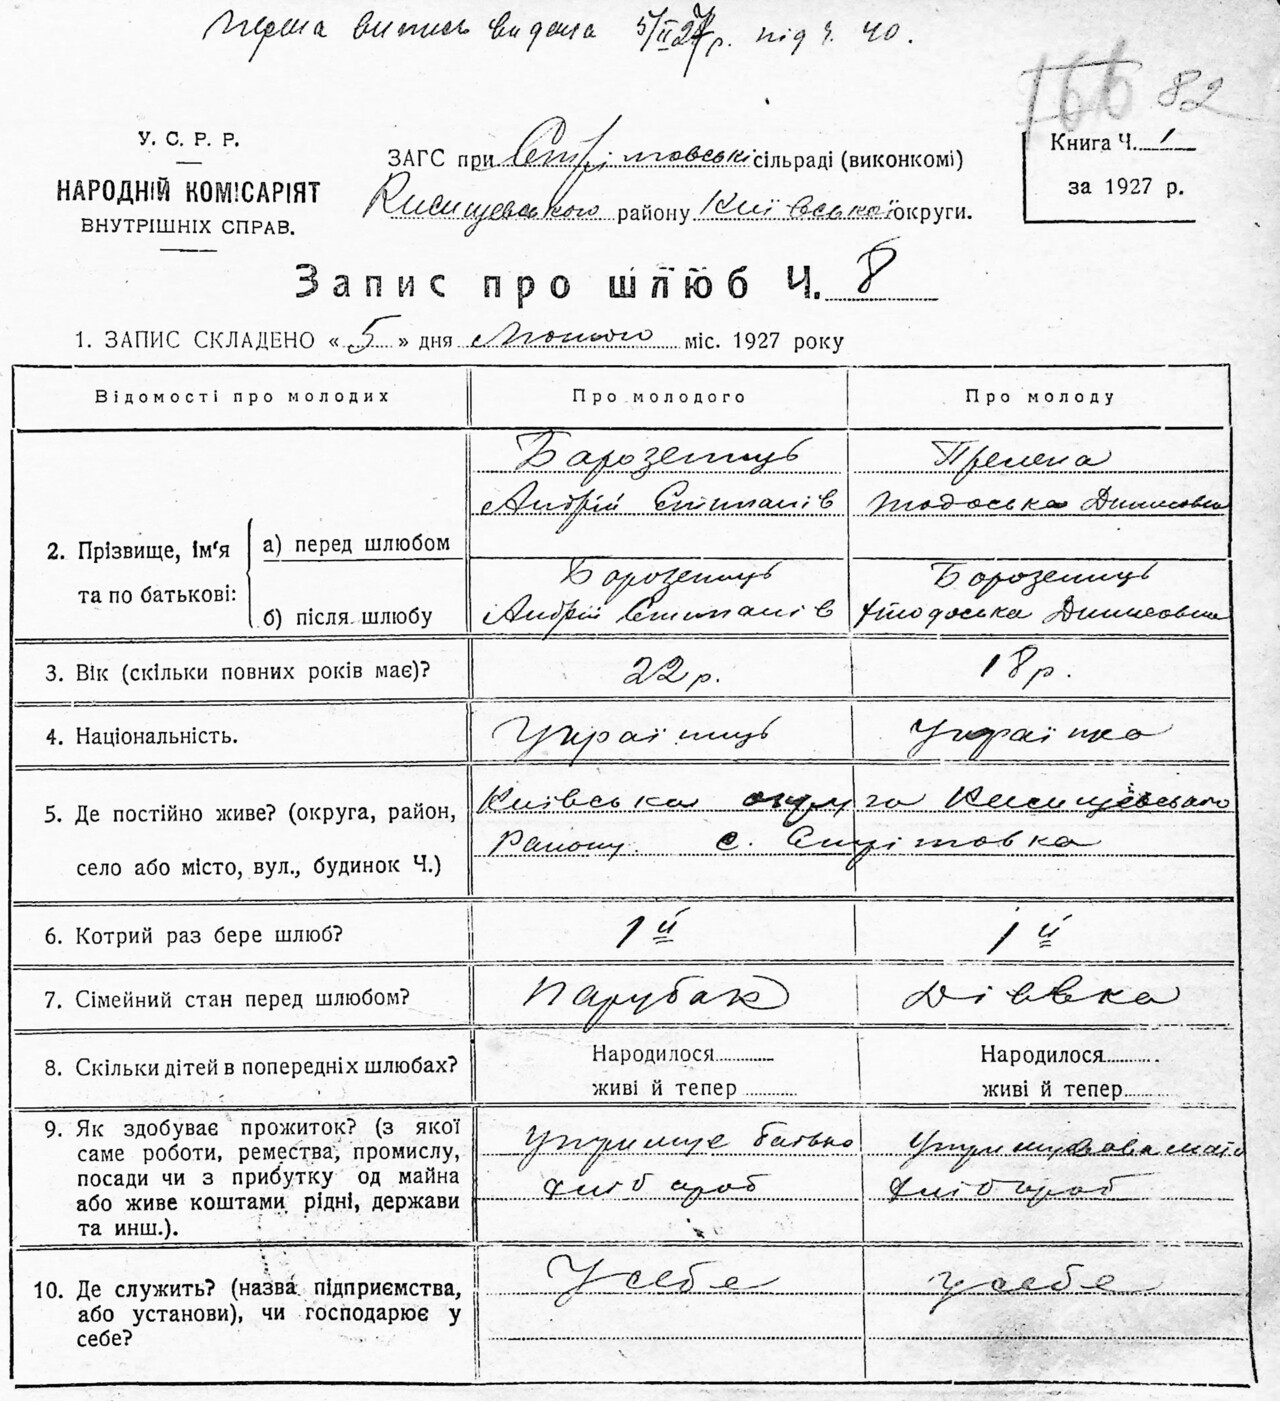 Перша витись видана 5/II 27 р. під ч. 40.
82
У. С. Р. Р.
НАРОДНІЙ КОМІСАРІЯТ
ВНУТРІШНІХ СПРАВ.
ЗАГС при сільраді (виконкомі)
району Київської округи.
Книга Ч. 1
за 1927 р.
Запис про шлюб Ч. 8
1. ЗАПИС СКЛАДЕНО « 5 » дня Лютого міс. 1927 року
Відомості про молодих
Про молодого
Про молоду
2. Прізвище, ім'я та по батькові:
а) перед шлюбом
Андрій Степанів
Тодоська Динисовна
б) після шлюбу
Борозенець
Андрій Степанів
Борозенець
Динисовна
3. Вік (скільки повних років має)?
22 р.
18 р.
4. Національність.
Українець
Українка
5. Де постійно живе? (округа, район,
село або місто, вул., будинок Ч.)
Київська округа
Району с.
6. Котрий раз бере шлюб?
1й
1й
7. Сімейний стан перед шлюбом?
Парубак
Дівка
8. Скільки дітей в попередніх шлюбах?
Народилося
живі й тепер
Народилося
живі й тепер
9. Як здобуває прожиток? (з якої
саме роботи, ремества, промислу,
посади чи з прибутку од майна
або живе коштами рідні, держави
та инш.).
батько
хлібороб
хлібороб
10. Де служить? (назва підприємства,
або установи), чи господарює у
себе?
У себе
у себе